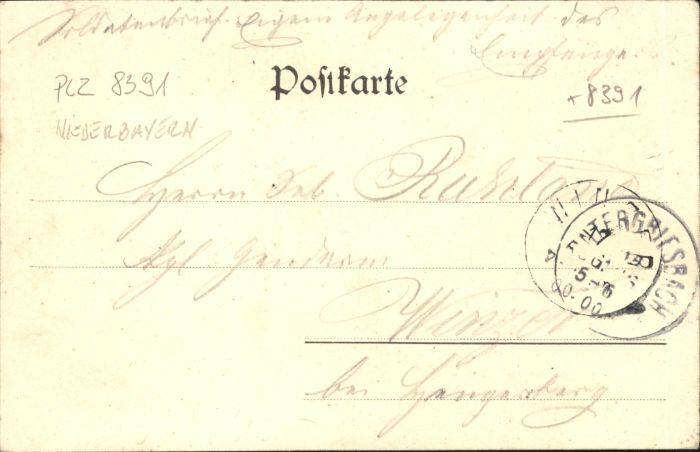 Soldatenbrief. Eigene Angelegenheit des
Empfängers
Postkarte
PLZ 8391
NIEDERBAYERN
* 8391
Herrn Seb.
Kgl. Gendarm
Winzer
bei Hengersberg.
UNTERGRIESBACH
5-6